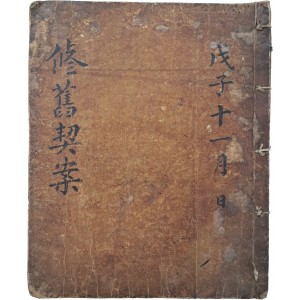 戊子十一月 日
修舊契案